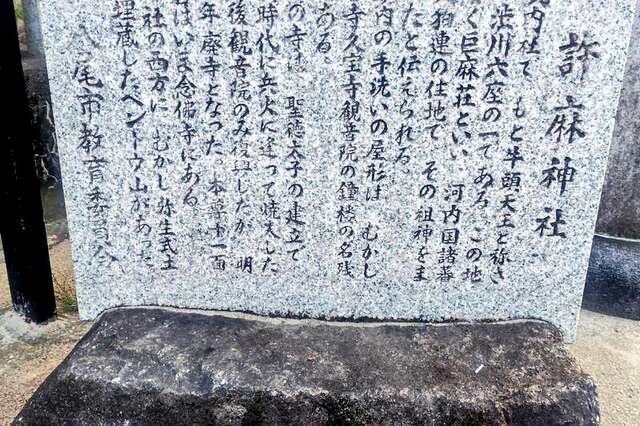 許麻神社
内社で もと牛頭天王と称さ
渋川六座の一である。この地
く巨麻荘といい 河内国諸蕃
狛連の住地で その祖神をま
たと伝えられる。
内の手洗いの屋形は むかし
寺久宝寺観音院の鐘楼の名残
ある。
の寺は 聖徳太子の建立で
時代に兵火に逢って焼失した
後観音院のみ復興したが 明
年廃寺となった。本尊十一面
はいま念佛寺にある。
社の西方に むかし弥生式土
埋蔵したベントウ山があった
尾市教育委員会